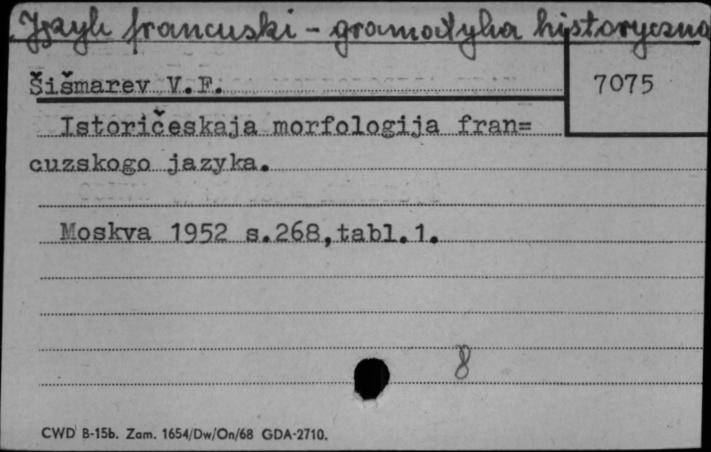 Język francuski - gramatyka historyczna
Šišmarev V.F.
7075
Istoričeskaja morfologija fran=
cuzskogo jazyka.
Moskva 1952 s.268,tabl.1.
8
CWD B-15b. Zam. 1654/Dw/On/68 GDA-2710.